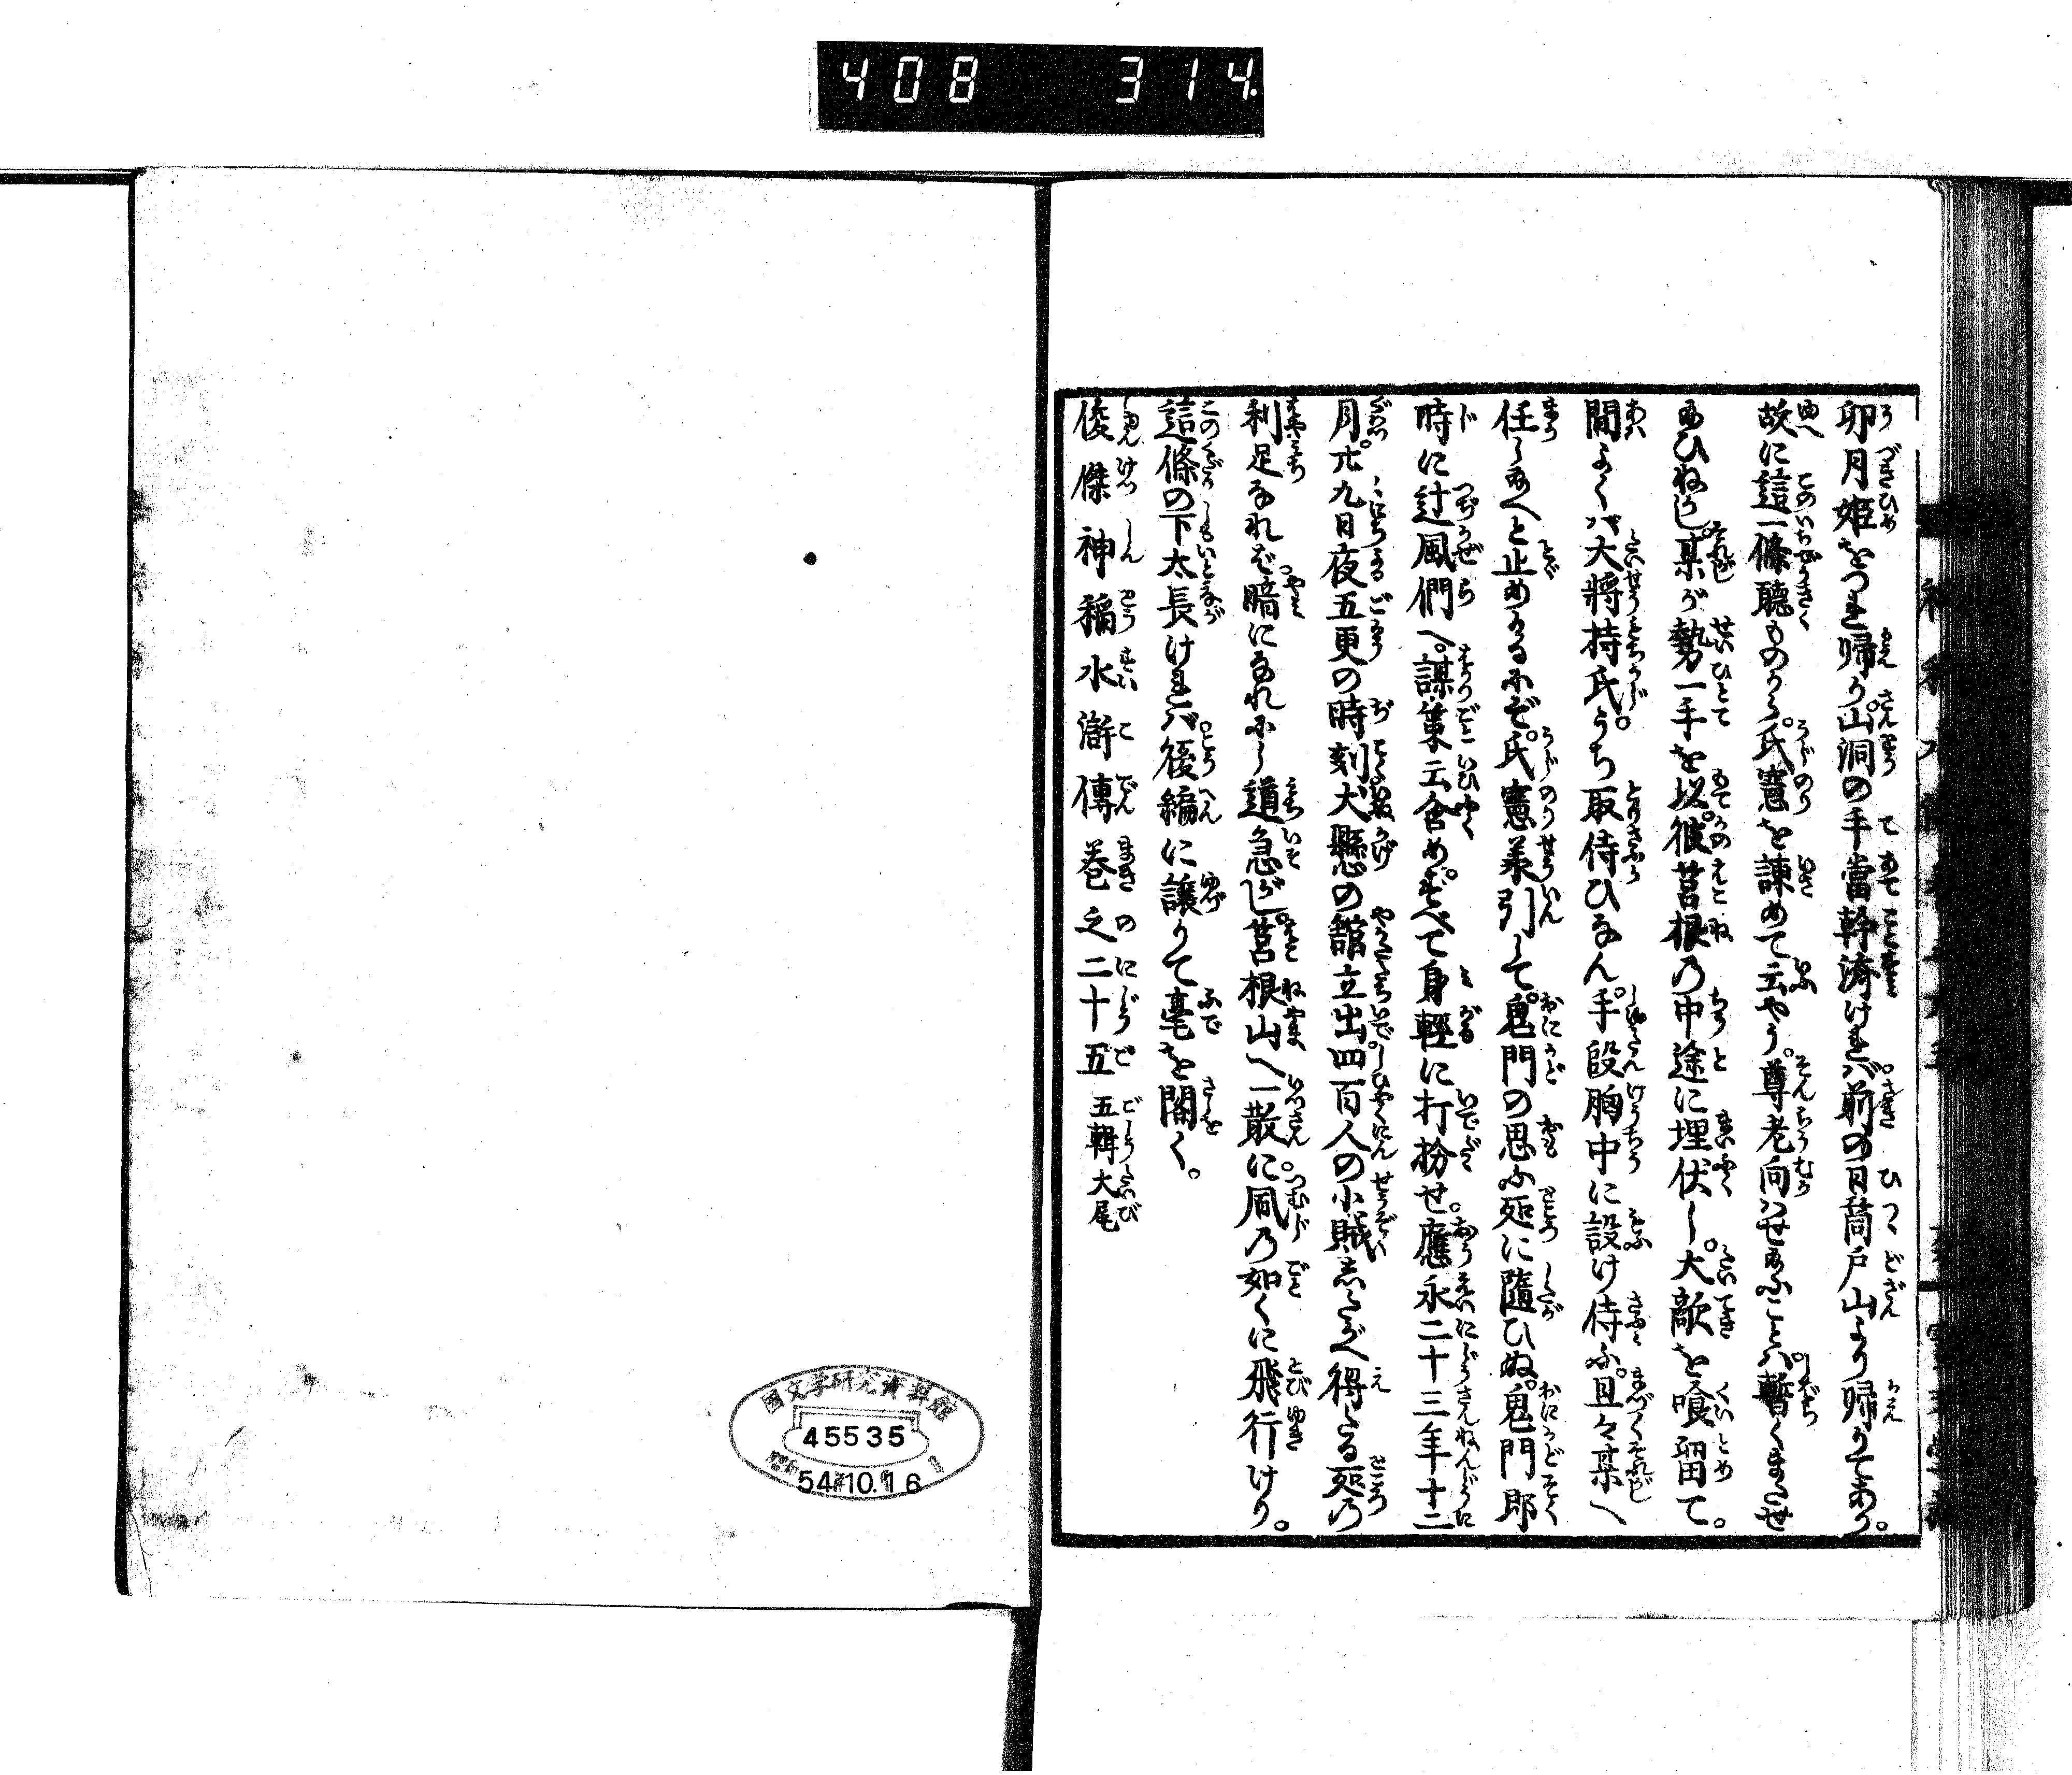 408 314.
卯月姫をつれ帰り山洞の手當幹済ければ。前の日筒戸山より帰りてあり。
故に這一條聴ものから。氏憲を諌めて云やう。尊老向はせ給ふことハ。暫くまたせ
給ひねかし。某が勢一手を以。彼莒根の中途に埋伏し。大敵を喰留て。
間よくバ大將持氏。うち取侍ひなん。手段胸中に設け侍ふ。且々某へ
任し給へと止めるにぞ。氏憲羕引して。鬼門の思ふ処に隨ひぬ。鬼門郎
時に辻風們へ。謀菓云含めず。すべて身輕に打扮せ。應永二十三年十二
月。廿九日夜五更の時刻。犬懸の舘立出。四百人の小賊志たがへ得たる処の
利足なれバ。暗になれにし道急がし。莒根山へ一散に。凮の如くに飛行けり。
這條の下太長ければ。後編に譲りて毫を閣く。
俊傑神稲水滸傳巻之二十五 五輯大尾
國文学研究資料館
45535
昭和
54.10.16